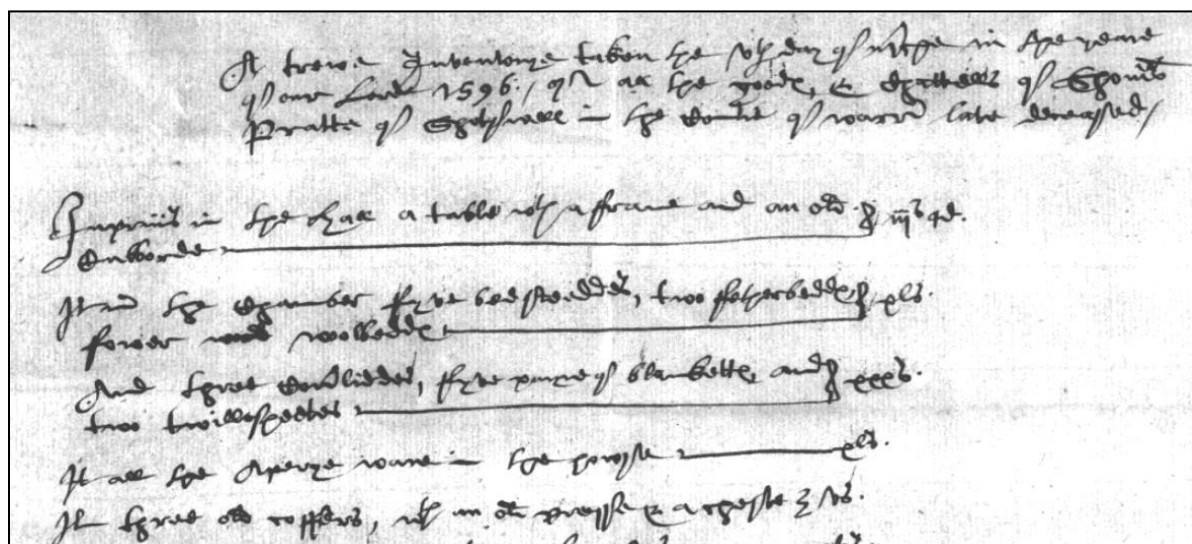 A trewe Inventorye taken the vth day of in the yeare
of our Lord 1596, of all the goodes & Chattells of Thomas
Pratte of Shotswell in the Countie of warr late deceased,
Inprimis in the hall a table wth a frame and an old iijs iiijd.
Cubborde
It in the Chamber fyve bedsteddes, two fetherbeddes xls.
fower wolbeddes
And three Coverliddes, fyve payre of blankettes and xxxs.
two twillesheetes
It all the naperye ware in the howse xls.
It three old coffers, wth an old presse & a cheste vs.